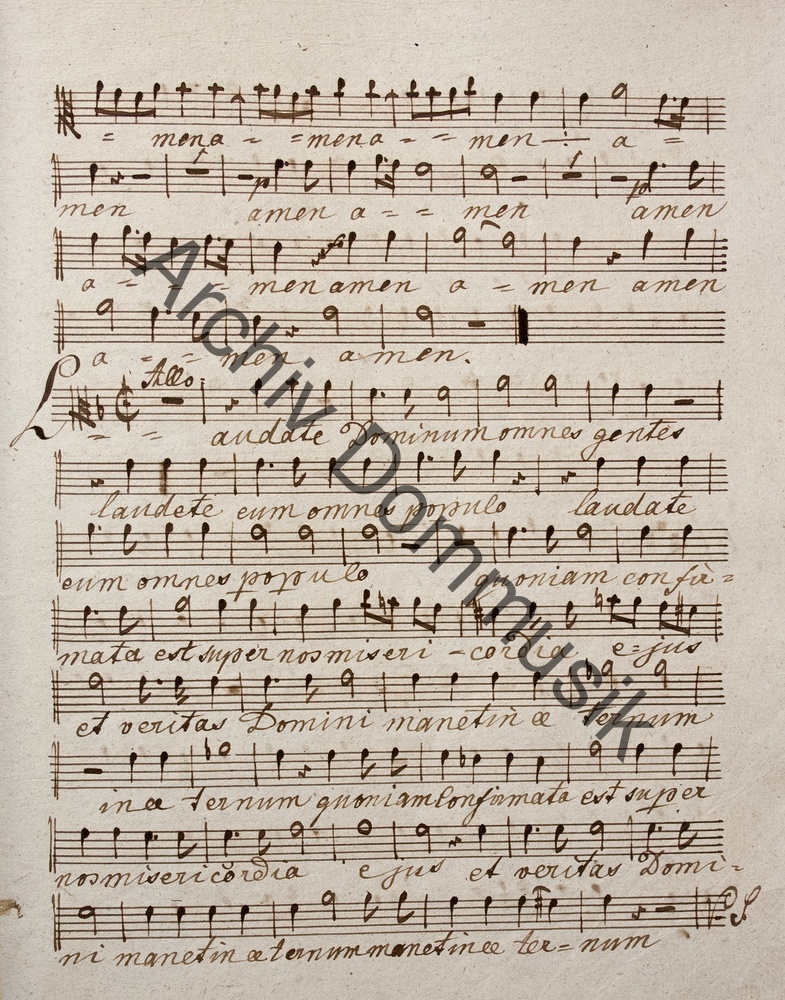 = mena - = mena - - = men ÷ a =
men amen a = = men amen
a - - - - men amen a - men amen
a - = = men amen.
Allo:
L = = audate Dominum omnes gentes
laudete eum omnes populo laudate
eum omnes populo quoniam confir=
mata est super nos miseri - cordia e=jus
et veritas Domini manet in æ ternum
in æ ternum quoniam Confirmata est super
nos misericordia ejus et veritas Domi=
ni manet in æternum manet in æ ter= num
Archiv Dommusik